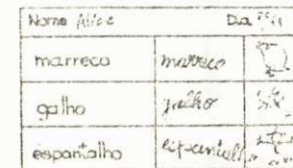 Nome Alice Dia
marreco marreco
galho galho
espantalho